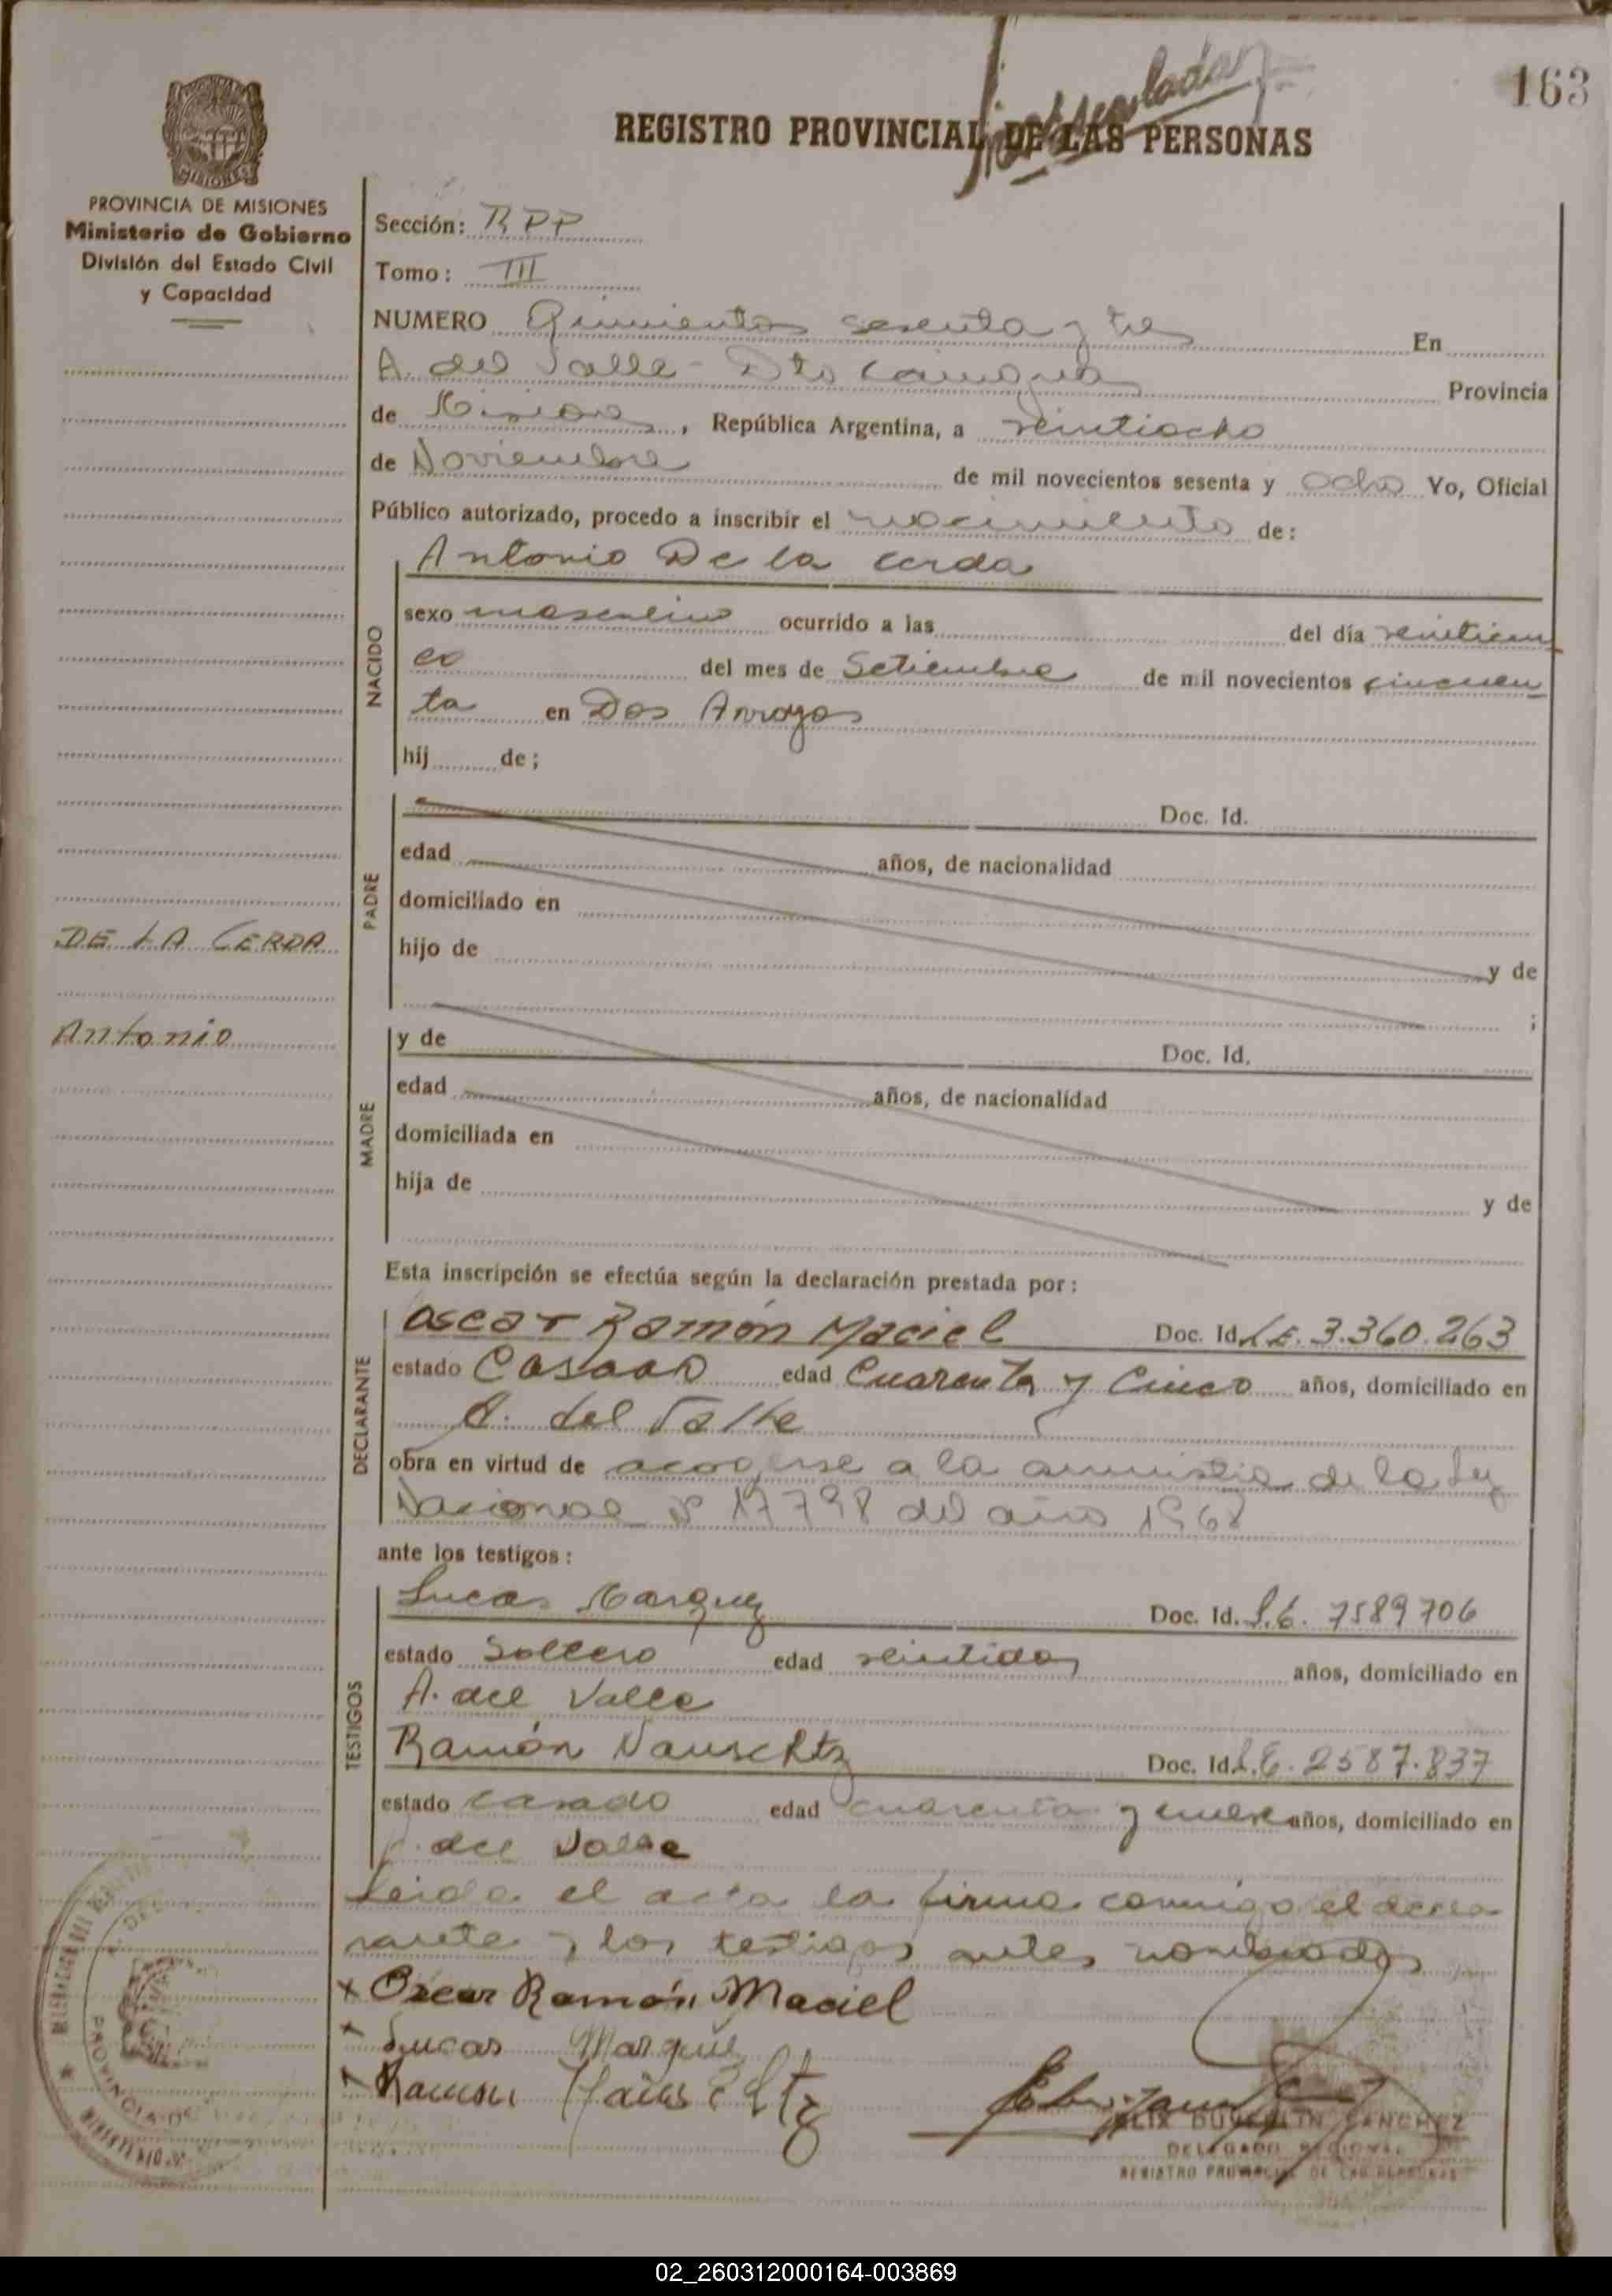 163
REGISTRO PROVINCIAL DE LAS PERSONAS
MISIONES
PROVINCIA DE MISIONES
Ministerio de Gobierno
División del Estado Civil
y Capacidad
Sección: RPP
Tomo: III
NUMERO Quinientos sesenta y tres En
A. del Valle - Dto Cainguas Provincia
de Misiones, República Argentina, a veintiocho
de Noviembre de mil novecientos sesenta y ocho Yo, Oficial
Público autorizado, procedo a inscribir el nacimiento de:
Antonio De la Cerda
NACIDO
sexo masculino ocurrido a las del día veinticin
co del mes de Setiembre de mil novecientos cincuen
ta en Dos Arroyos
hij de;
PADRE
Doc. Id.
edad años, de nacionalidad
domiciliado en
hijo de y de
;
DE LA CERDA
Antonio
MADRE
y de Doc. Id.
edad años, de nacionalidad
domiciliada en
hija de y de
Esta inscripción se efectúa según la declaración prestada por:
DECLARANTE
Oscar Ramón Maciel Doc. Id. L.E. 3.360.263
estado Casado edad Cuarenta y Cinco años, domiciliado en
A. del Valle
obra en virtud de acogerse a la amnistia de la Ley
Nacional Nº 17798 del año 1968
ante los testigos:
TESTIGOS
Lucas Marquez Doc. Id. L.E. 7589706
estado Soltero edad veintidos años, domiciliado en
A. del Valle
Ramón Doc. Id. L.E. 2587.837
estado casado edad cuarenta y años, domiciliado en
A. del Valle
Leida el acta la firma conmigo el decla
rante y los testigos antes nombrados
x Oscar Ramón Maciel
x Lucas Marquez
x Ramon
SANCHEZ
DELEGADO REGIONAL
REGISTRO PROVINCIAL DE LAS PERSONAS
PROVINCIA DE
02_260312000164-003869